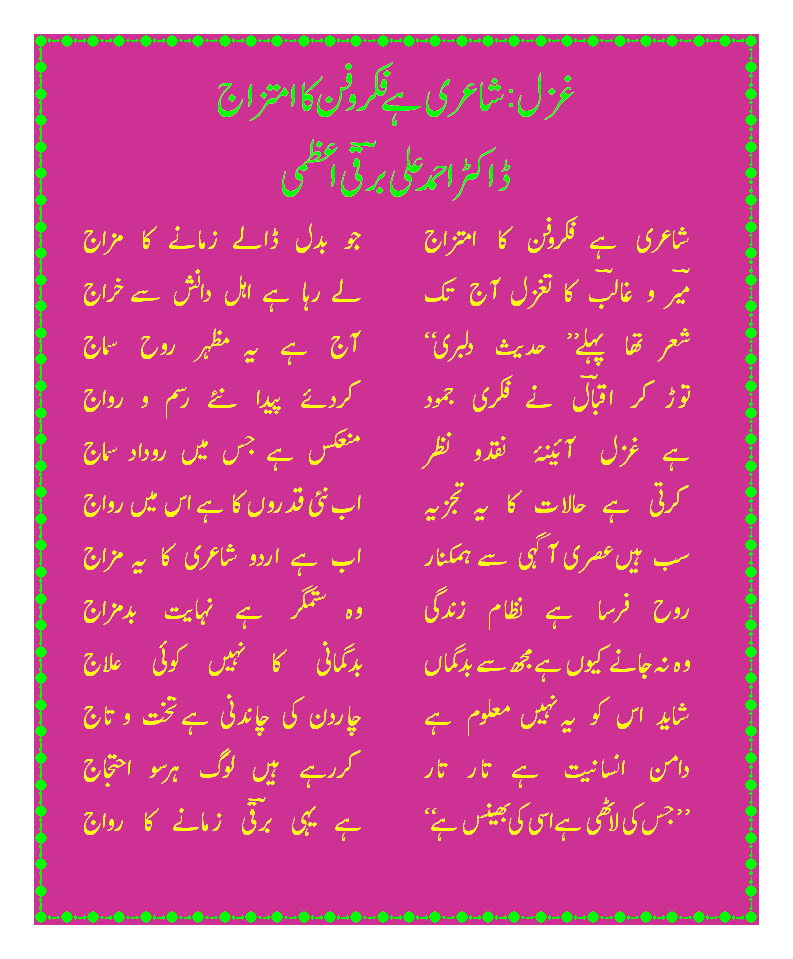 غزل : شاعری ہے فکروفن کا امتزاج
ڈاکٹر احمد علی برقیؔ اعظمی
شاعری ہے فکروفن کا امتزاج جو بدل ڈالے زمانے کا مزاج
میرؔ و غالبؔ کا تغزل آج تک لے رہا ہے اہل دانش سے خراج
شعر تھا پہلے ’’حدیث دلبری‘‘ آج ہے یہ مظہر روح سماج
توڑ کر اقبالؔ نے فکری جمود کردئے پیدا نئے رسم و رواج
ہے غزل آئینۂ نقدو نظر منعکس ہے جس میں روداد سماج
کرتی ہے حالات کا یہ تجزیہ اب نئی قدروں کا ہے اس میں رواج
سب ہیں عصری آگہی سے ہمکنار اب ہے اردو شاعری کا یہ مزاج
روح فرسا ہے نظام زندگی وہ ستمگر ہے نہایت بدمزاج
وہ نہ جانے کیوں ہے مجھ سے بدگماں بدگمانی کا نہیں کوئی علاج
شاید اس کو یہ نہیں معلوم ہے چاردن کی چاندنی ہے تخت و تاج
دامن انسانیت ہے تار تار کررہے ہیں لوگ ہرسو احتجاج
’’جس کی لاٹھی ہے اسی کی بھینس ہے‘‘ ہے یہی برقیؔ زمانے کا رواج